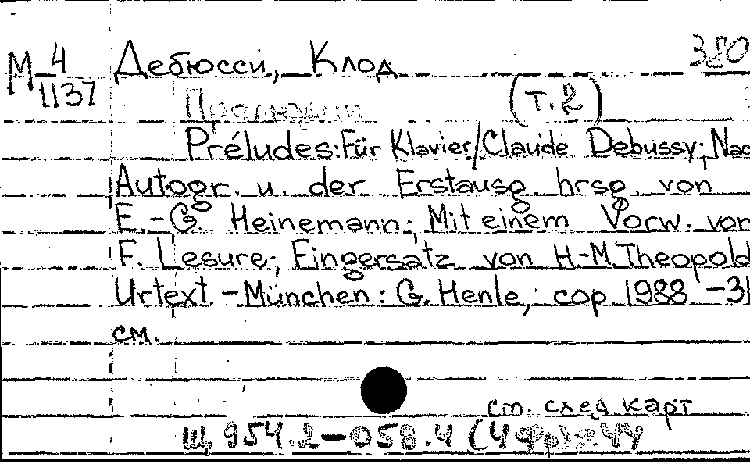 М 4 Дебюсси, Клод 380
1137
Прелюдии (т. 2)
Préludes: Für Klavier/Claude Debussy; Nac
Autogr. u. der Erstausg. hrsg. von
E.-G. Heinemann; Mit einem Vorw. von
F. Lesure; Fingersatz von H-M. Theopold
Urtext - München: G. Henle, cop. 1988 - 31
см.
см. след карт
Щ 954.2-058.4